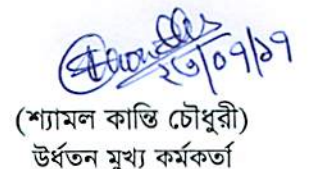 ২৩/০৭/১৭
(শ্যামল কান্তি চৌধুরী)
উর্ধতন মুখ্য কর্মকর্তা